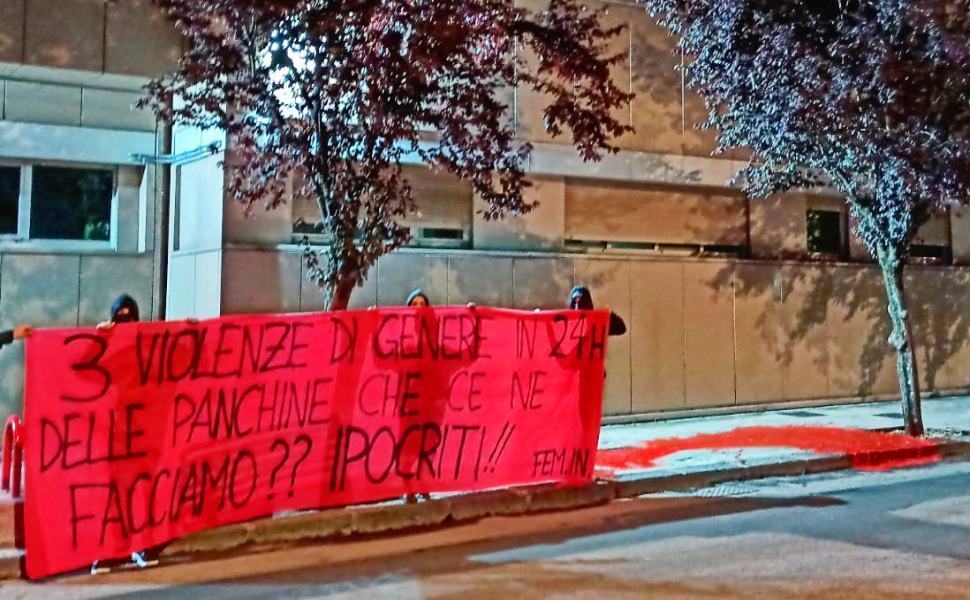 3 VIOLENZE DI GENERE IN 24H
DELLE PANCHINE CHE CE NE
FACCIAMO?? IPOCRITI!!
FEM.IN.